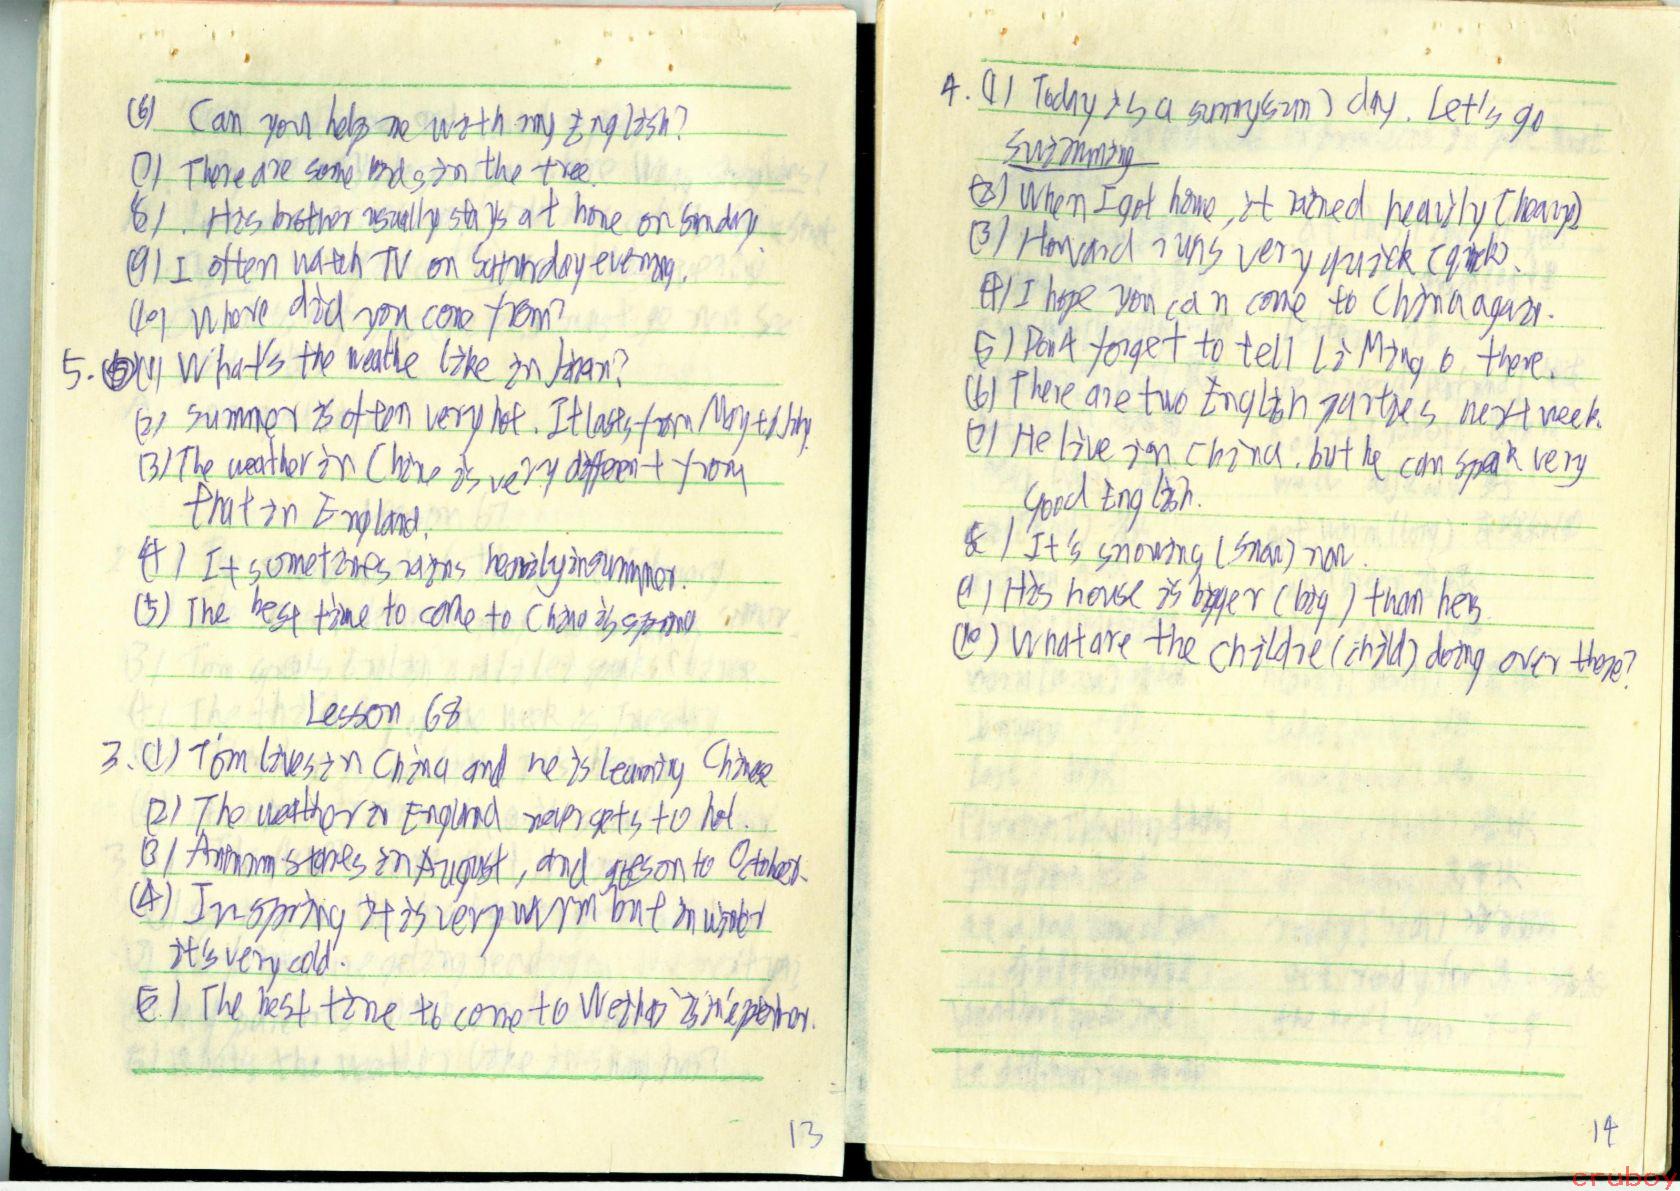 (6) Can you help me with my English?
(7) There are some birds in the tree.
(8). His brother usually stays at home on Sunday.
(9) I often watch TV on Saturday evening.
(10) Where did you come from?
5. (1) What's the weathe like in Japan?
(2) Summer is often very hot. It lasts from May to July.
(3) The weather in Chine is very different from
that in England.
(4) It sometimes rains heavily in summer.
(5) The best time to come to China is spring
Lesson 68
3. (1) Tom lives in China and he is learning Chinese
(2) The weather in England never gets to hot.
(3) Autumn starts in August, and goes on to October.
(4) In spring it is very warm but in winter
it's very cold.
(5) The best time to come to is in
13
4. (1) Today is a sunny(sun) day. Let's go
swimming
(2) When I got home, it rained heavily (heavy)
(3) Howard runs very quick (quick).
(4) I hope you can come to China again.
(5) Don't forget to tell Li Ming o there.
(6) There are two English parties next week.
(7) He live in China. but he can speak very
good English.
(8) It's snowing (snow) now.
(9) His house is bigger (big) than hers.
(10) What are the childre (child) doing over there?
14
cruboy